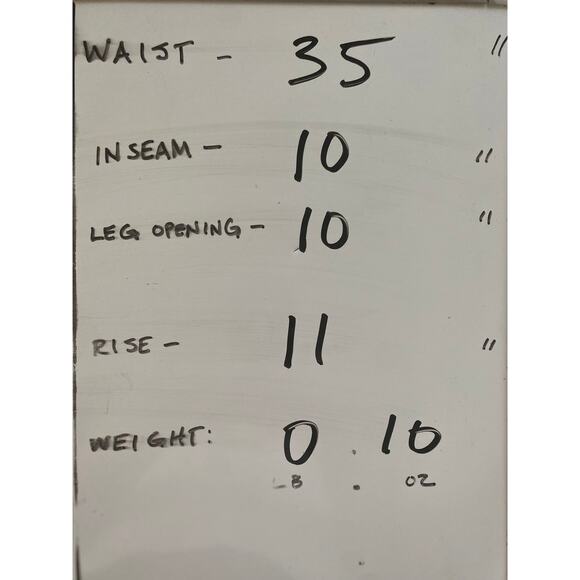 WAIST - 35 "
INSEAM - 10 "
LEG OPENING - 10 "
RISE - 11 "
WEIGHT: 0 . 10
LB . OZ